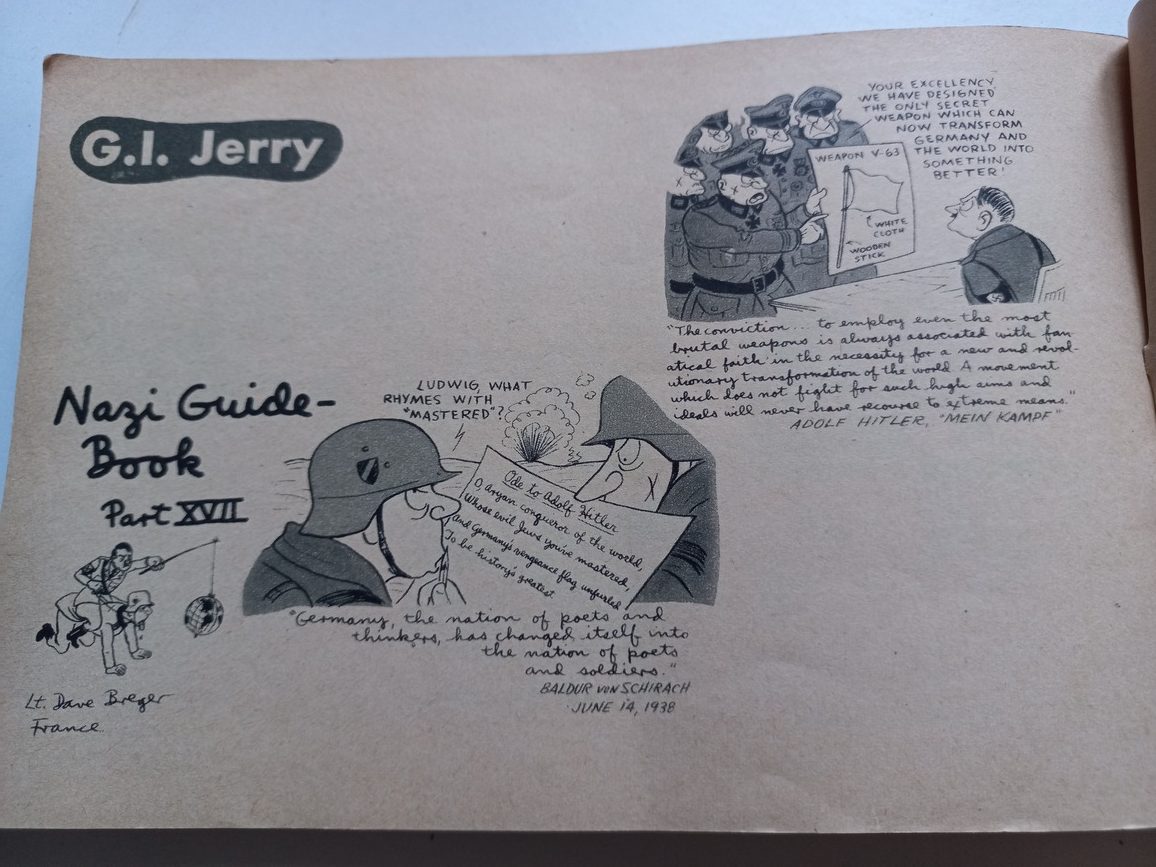 G.I. Jerry
Nazi Guide-
Book
Part XVII
Lt. Dave Breger
France
LUDWIG, WHAT
RHYMES WITH
"MASTERED"?
Ode to Adolf Hitler
O, Aryan conqueror of the world,
Whose evil Jews you've mastered,
and Germany's vengeance flag unfurled
To be history's greatest
"Germany, the nation of poets and
thinkers, has changed itself into
the nation of poets
and soldiers."
BALDUR VON SCHIRACH
JUNE 14, 1938
YOUR EXCELLENCY
WE HAVE DESIGNED
THE ONLY SECRET
WEAPON WHICH CAN
NOW TRANSFORM
GERMANY AND
THE WORLD INTO
SOMETHING
BETTER!
WEAPON V-63
WHITE
CLOTH
WOODEN
STICK
"The conviction... to employ even the most
brutal weapons is always associated with fan-
atical faith in the necessity for a new and revol-
utionary transformation of the world. A movement
which does not fight for such high aims and
ideals will never have recourse to extreme means."
ADOLF HITLER, "MEIN KAMPF"